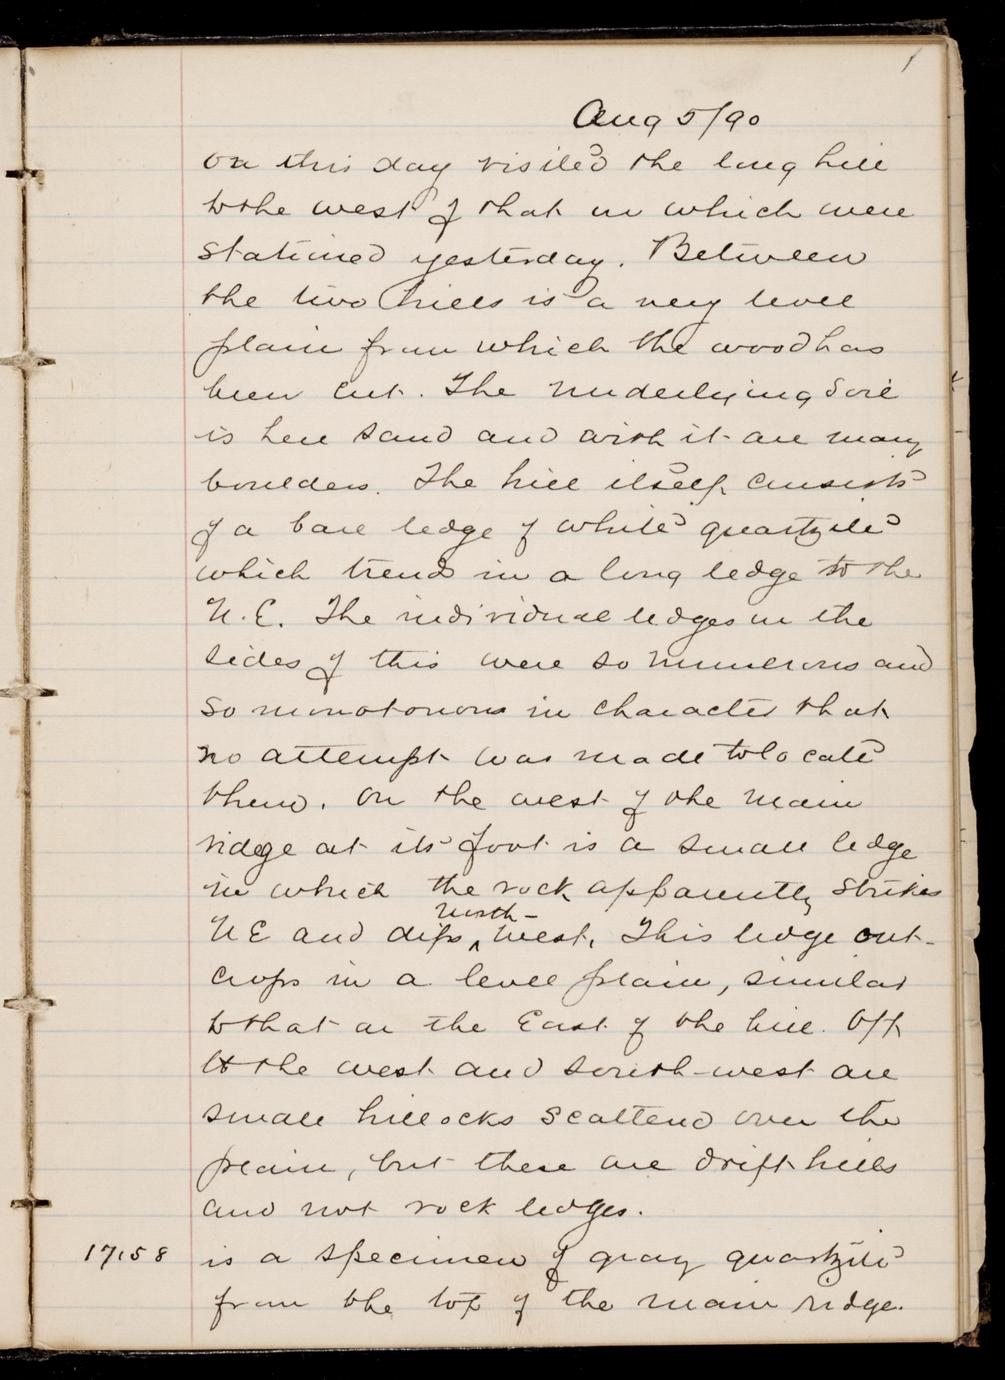 1
Aug 5/90
On this day visited the long hill
to the west of that on which were
stationed yesterday. Between
the two hills is a very level
plain from which the wood has
been cut. The underlying soil
is here sand and with it are many
boulders. The hill itself consists
of a bare ledge of white quartzite
which trends in a long ledge to the
N.E. The individual ledges on the
sides of this were so numerous and
so monotonous in character that
no attempt was made to locate
them. On the west of the main
ridge at its foot is a small ledge
in which the rock apparently strikes
north-
NE and dips ^ west. This ledge out-
crops in a level plain, similar
to that on the East of the hill. Off
to the west and south-west are
small hillocks scattered over the
plain, but these are drift hills
and not rock ledges.
17158 is a specimen of gray quartzite
from the top of the main ridge.